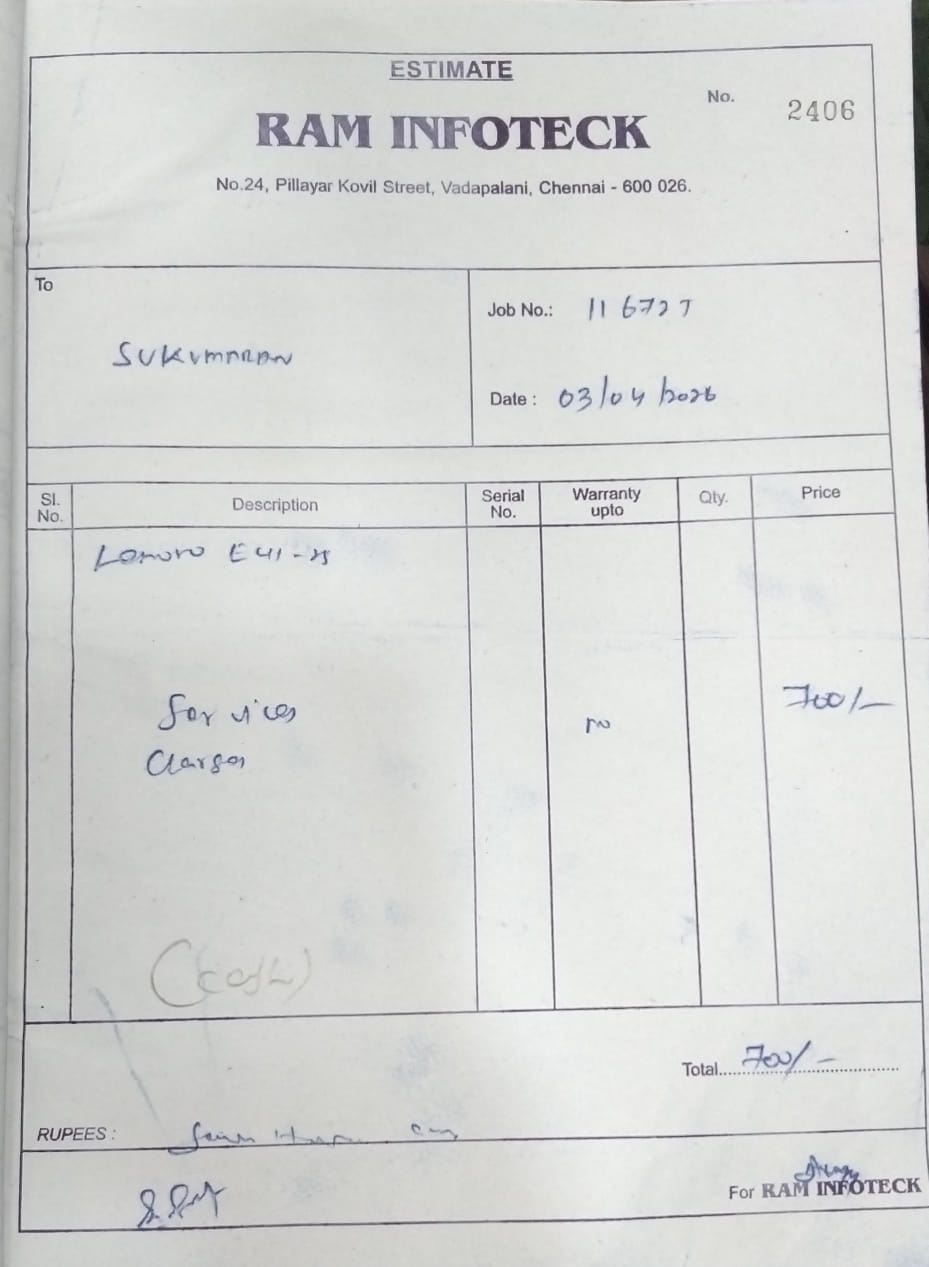 ESTIMATE
No. 2406
RAM INFOTECK
No.24, Pillayar Kovil Street, Vadapalani, Chennai - 600 026.
To
SUKUMARAN
Job No.: 116727
Date : 03/04/2026
Sl. No. Description Serial No. Warranty upto Qty. Price
Lenovo E41-25
Services no 700/-
Charges
(cash)
Total 700/-
RUPEES : Seven
For RAM INFOTECK